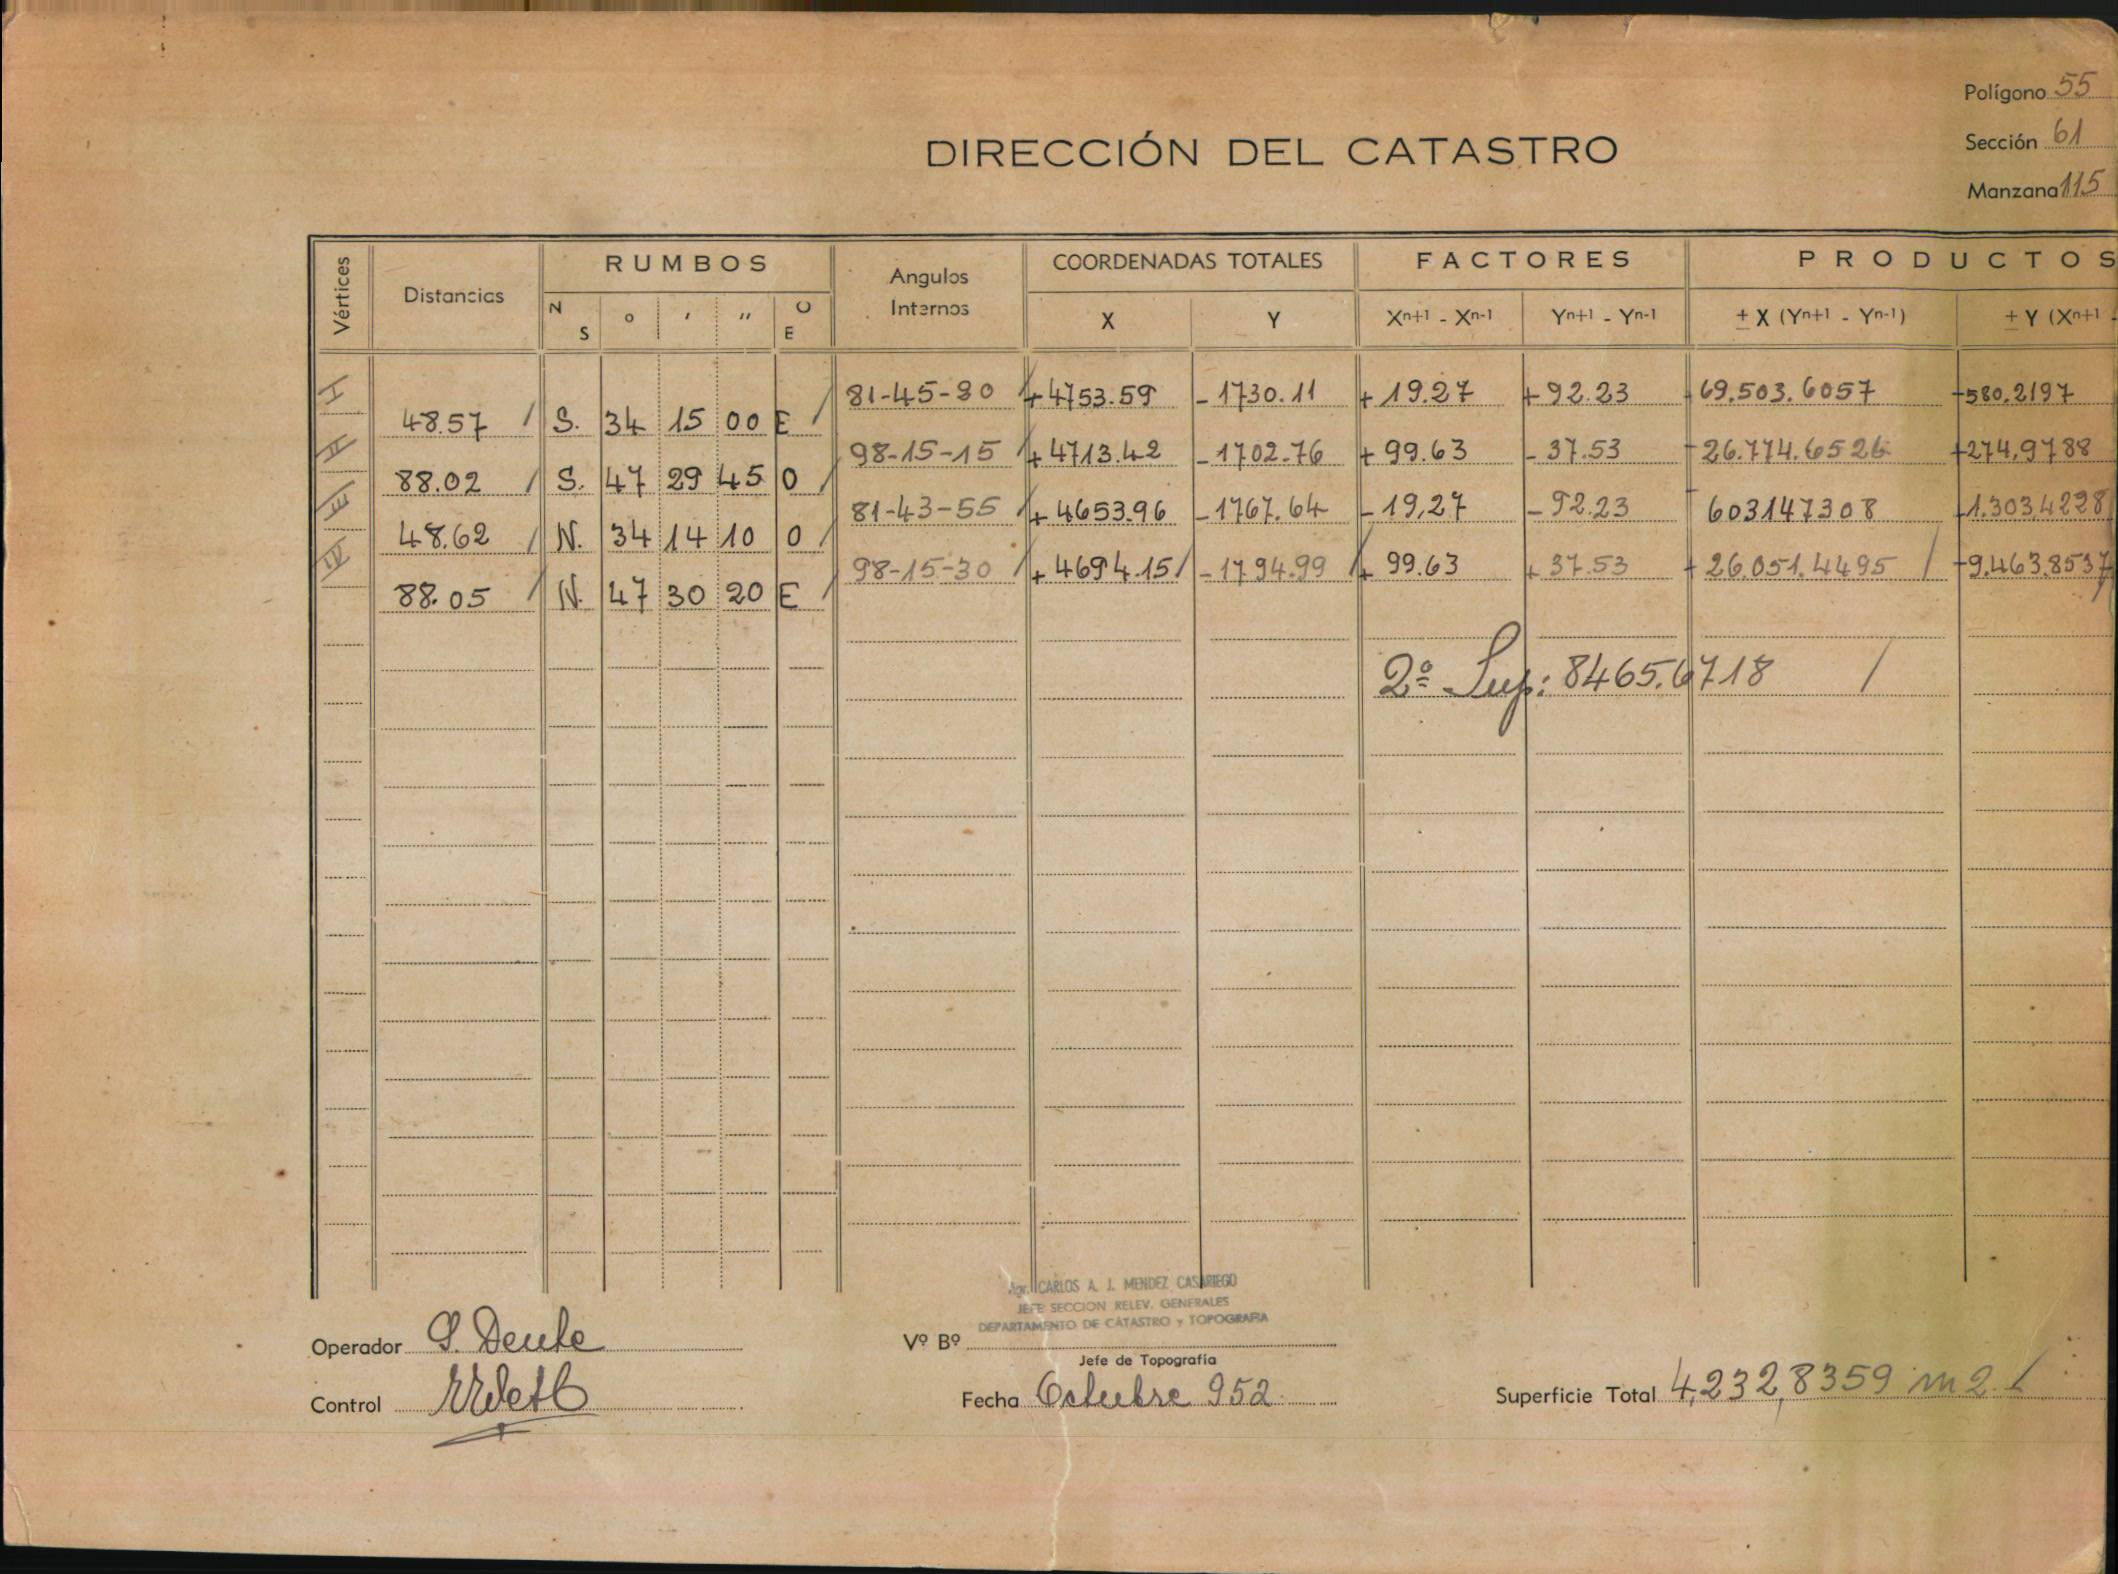 Polígono 55
DIRECCIÓN DEL CATASTRO
Sección 61
Manzana 115
Vértices Distancias RUMBOS Angulos Internos COORDENADAS TOTALES FACTORES PRODUCTOS
N S ° ' '' O E X Y Xn+1 - Xn-1 Yn+1 - Yn-1 ± X (Yn+1 - Yn-1) ± Y (Xn+1 -
I 81-45-20 +4753.59 -1730.11 +19.27 +92.23 +69.503.6057 +580.2197
48.57 / S. 34 15 00 E /
II 98-15-15 +4713.42 -1702.76 +99.63 -37.53 -26.774.6526 +274,9788
88.02 / S. 47 29 45 O /
III 81-43-55 +4653.96 -1767.64 -19,27 -92.23 -603147308 +1.303,4228
48.62 / N. 34 14 10 O /
IV 98-15-30 +4694.15 / -1794.99 / +99.63 +37.53 +26.051.4495 / +9.463.8537
88.05 / N. 47 30 20 E /
2ª Sup: 8465.6718 /
Agr. CARLOS A. J. MENDEZ CASARIEGO
JEFE SECCION RELEV. GENERALES
DEPARTAMENTO DE CATASTRO y TOPOGRAFIA
Operador Vº Bº
Jefe de Topografía
Control Fecha Octubre 952 Superficie Total 4,232,8359 m2.